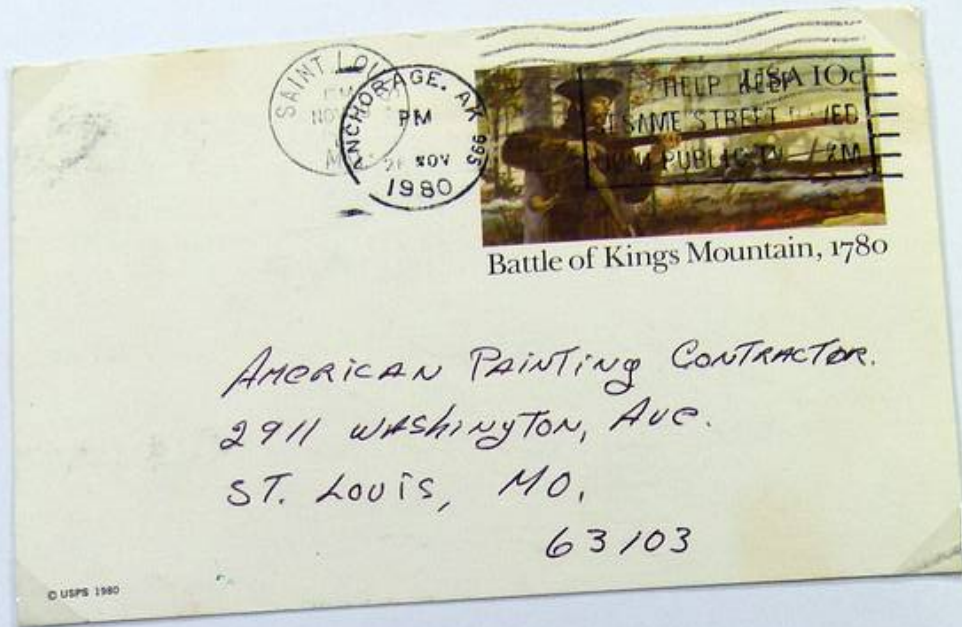 SAINT LOU
PM
NOV
M
ANCHORAGE. AK 995
PM
NOV
1980
USA 10c
HELP KEEP
SAME STREET
PUBLIC TV
Battle of Kings Mountain, 1780
AMERICAN PAINTING CONTRACTOR.
2911 WASHINGTON, AVE.
ST. LOUIS, MO.
63103
© USPS 1980